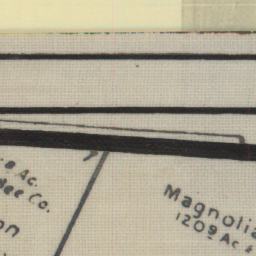 Ac.
Co.
on
Magnolia
1209 Ac ±